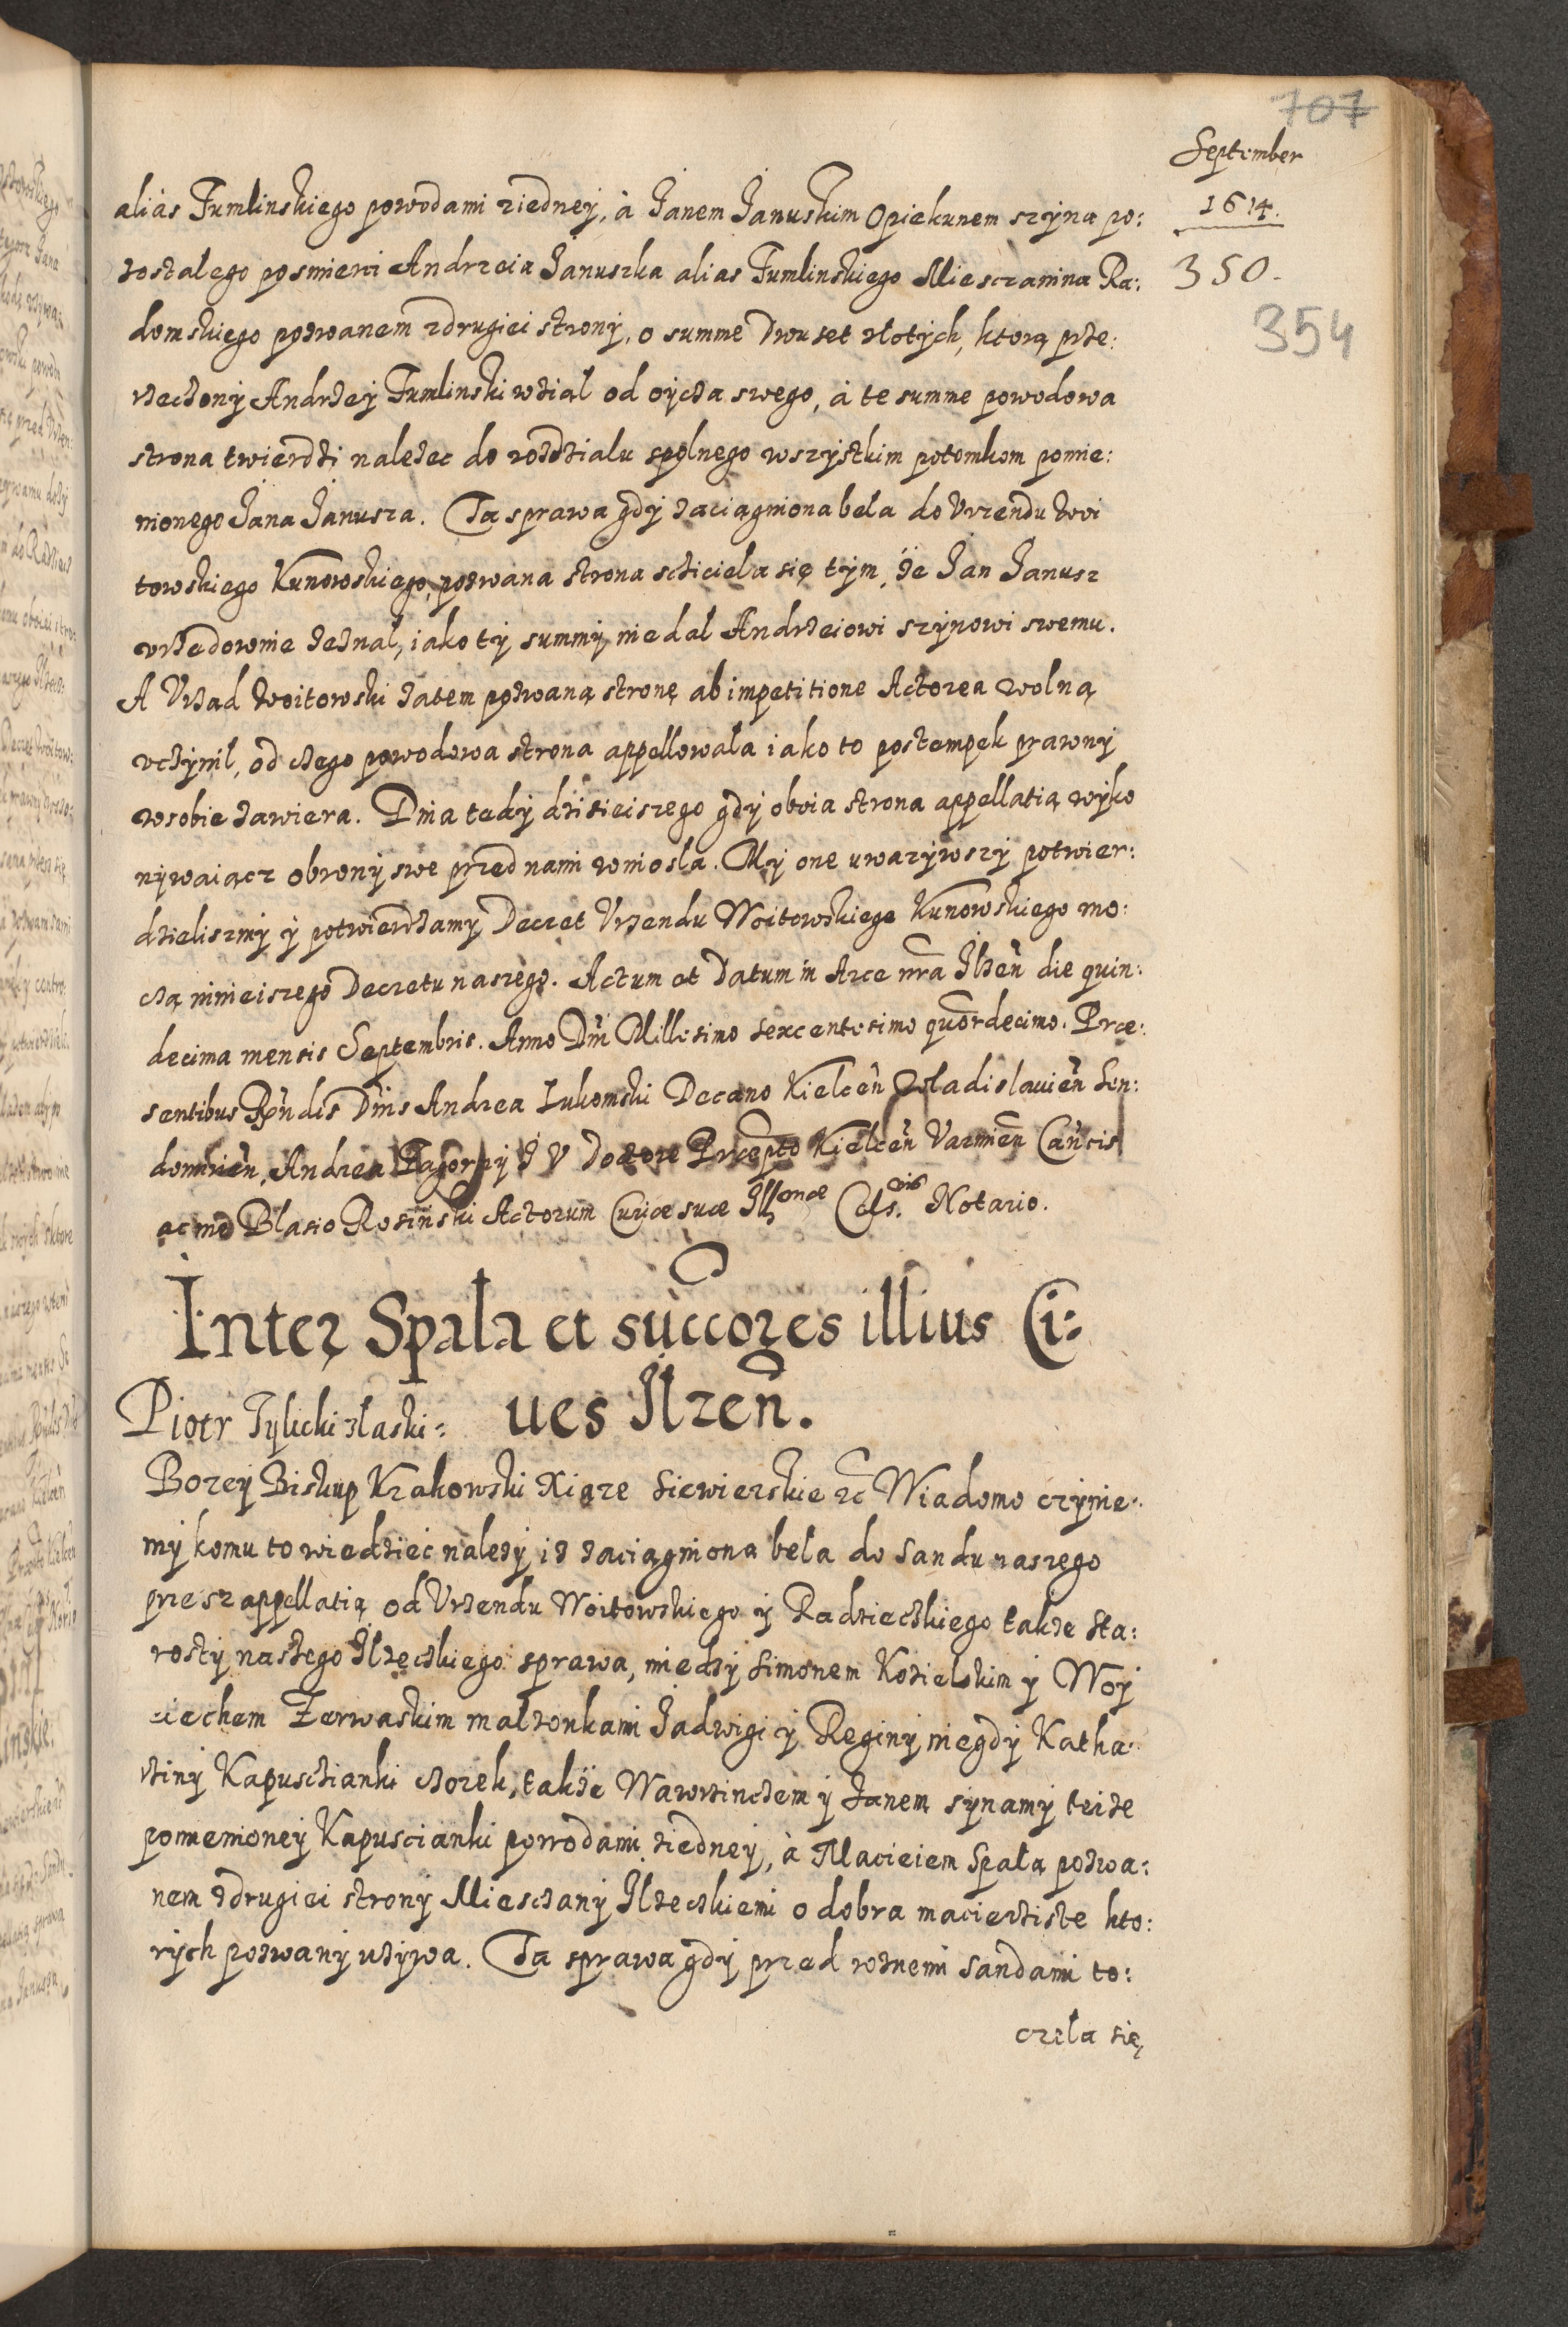 707
September
1614.
350.
354
alias Fumlinskiego powodami ziedney, à Janem Januskim Opiekunem szyna po:
zostalego posmierci Andrzeia Januszka alias Fumlinskiego Miesczanina Ra:
domskiego pozwanem zdrugiei strony, o summe Dwuset złotych, ktorą prze:
rzeczony Andrzey Fumlinski wziąl od oycza swego, à te summe powodowa
strona twierdzi nalezec do rozdzialu spolnego wszystkim potomkom pomie:
nionego Jana Janusza. Ta sprawa gdy zaciągniona bela do Vrzendu Woi
towskiego Kunowskiego, pozwana strona scziciela się tym, że Jan Janusz
vrzedownie zeznal, iako ty summy nie dal Andrzeiowi szynowi swemu.
A Vrzad Woitowski zatem pozwaną stronę ab impetitione Actorea wolną
vczynil, od czego powodowa strona appellowala iako to postempek prawny
wsobie zawiera. Dnia tedy dzisieiszego gdy oboia strona appellatią wyko
nywaiącz obrony swe przed nami wniosla. My one uwazywszy potwier:
dzieliszmy y potwierdzamy Decret Vrzendu Woitowskiego Kunowskiego mo:
czą ninieiszego Decretu naszego. Actum et Datum in Arce nrã Ilzen̄ die quin:
decima mensis Septembris. Anno Dn̄i Millesimo sexcentesimo quõrdecimo. Prae:
sentibus Rn̄dis Dn̄is Andrea Łukomski Decano Kielcen̄ Wladislauien̄ Sen:
domirien̄, Andrea Pagorzy J V Doctore Praepto Kielcen̄ Varmien̄ Can̄cis
ac me Blasio Rosinski Actorum Curiae suae Illonae Cels.vis Notario.
Inter Spala et succores illius Ci:
ues Ilzen̄.
Piotr Tylicki zlaski:
Bozey Biskup Krakowski Xiąze Siewierskie zc̃ Wiadomo czynie:
my komu to wiedziec nalezy iz zaciągniona bela do Sandu naszego
przesz appellatią od Vrzendu Woitowskiego y Radzieczkiego takze Sta:
rosty naszego Ilzęczkiego sprawa, miedzy Simonem Kozielskim y Woy
ciechem Zerwaskim malzonkami Jadwigi y Reginy niegdy Katha:
rziny Kapusczianki czorek, takze Wawrzinczem y Janem synamy teize
pomienioney Kapuscianki powodami ziedney, à Macieiem Spałą pozwa:
nem zdrugiei strony Miesczany Ilzeczkiemi o dobra macierziste kto:
rych pozwany uzywa. Ta sprawa gdy przed roznemi Sandami to:
czela się